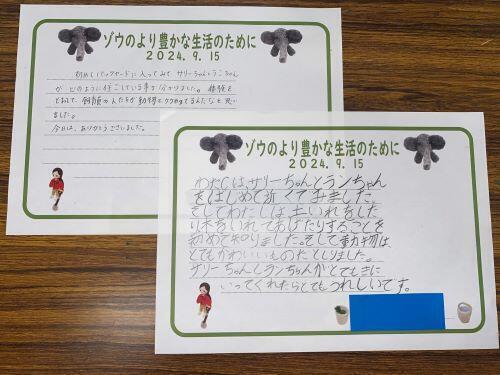 ゾウのより豊かな生活のために
2024.9.15
初めてバックヤードに入ってみて サリーちゃんとランちゃん
が どのように行こしている事が分かりました。
として、飼育の人たちが動物
ました。
今日は、ありがとうございました。
ゾウのより豊かな生活のために
2024.9.15
わたしは、サリーちゃんとランちゃん
をはじめて近くでみました。
そしてわたしは土いれをした
り木をいれてあげたりすることを
初めて知りました。そして動物は、
とてもかわいいものだとしりました。
サリーちゃんとランちゃんがとてもきに
いってくれたらとてもうれしいです。